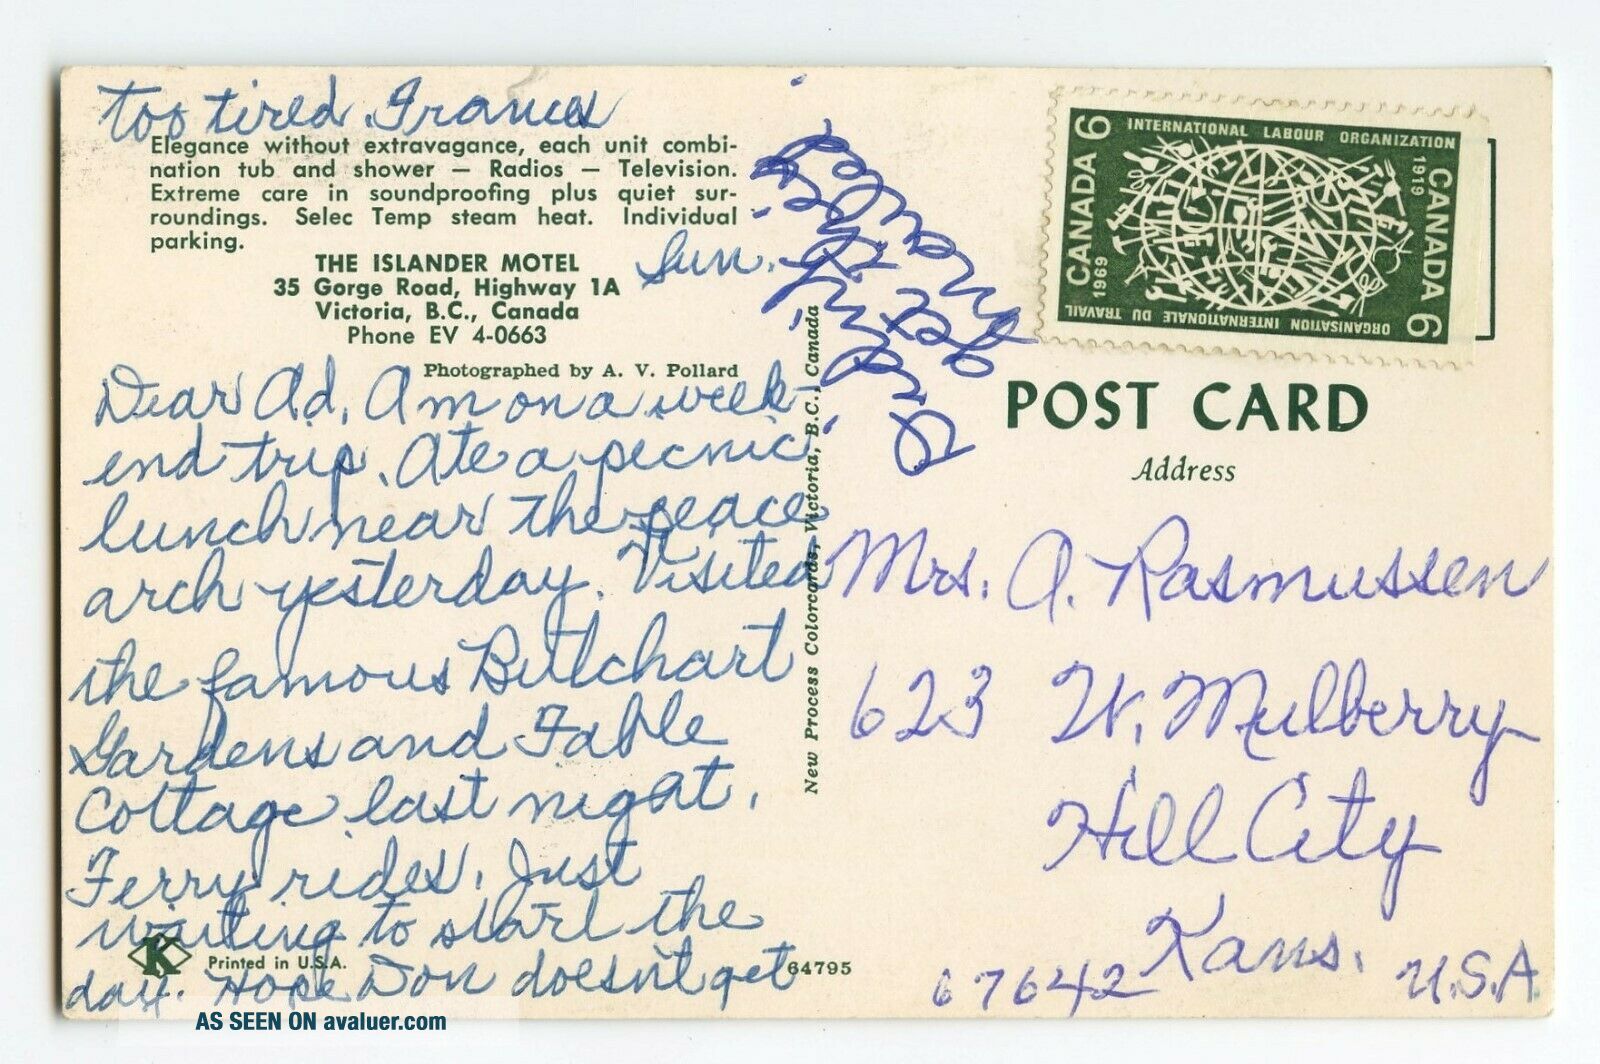 too tired. Frances
Elegance without extravagance, each unit combi-
nation tub and shower — Radios — Television.
Extreme care in soundproofing plus quiet sur-
roundings. Selec Temp steam heat. Individual
parking.
THE ISLANDER MOTEL
35 Gorge Road, Highway 1A
Victoria, B.C., Canada
Phone EV 4-0663
Photographed by A. V. Pollard
Sun.
Dear Ad, Am on a week-
end trip. Ate a picnic
lunch near the peace
arch yesterday. Visited
the famous Butchart
Gardens and Fable
Cottage last night.
Ferry rides. Just
waiting to start the
day. Hope Don doesn't get
K
Printed in U.S.A.
64795
New Process Colorcards, Victoria, B.C., Canada
CANADA 6
INTERNATIONAL LABOUR ORGANIZATION
1919
CANADA 6
1969
ORGANISATION INTERNATIONALE DU TRAVAIL
POST CARD
Address
Mrs. A. Rasmussen
623 W. Mulberry
Hill City
Kans.
67642
U.S.A.
AS SEEN ON avaluer.com